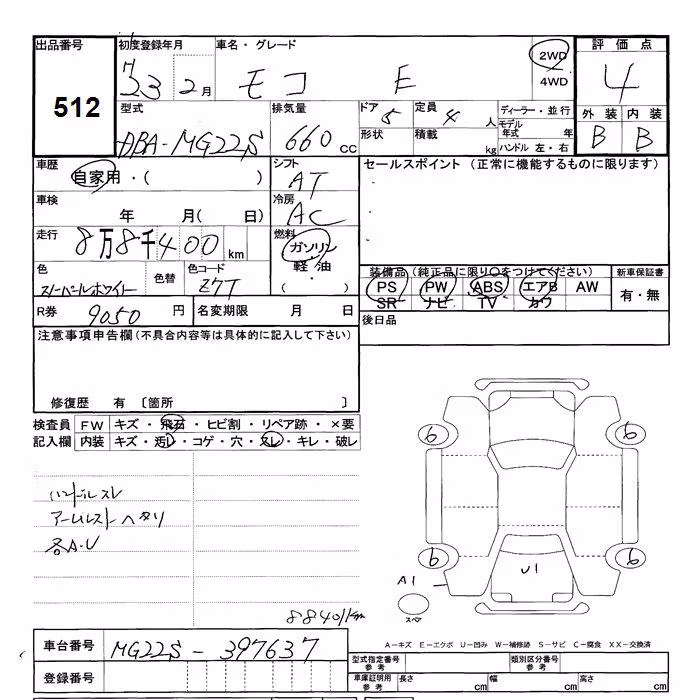 出品番号 初度登録年月 車名・グレード 評価点
512
H23 2月 モコ E 2WD 4WD 4
型式 排気量 ドア 定員 ディーラー・並行 外装 内装
DBA-MG22S 660 cc 5 4人 モデル年式 年 B B
形状 積載 kg ハンドル 左・右
車歴 シフト セールスポイント(正常に機能するものに限ります)
自家用・( ) AT
車検 冷房
年 月( 日) AC
走行 燃料
8万8千400km ガソリン
軽・油
( ・ )
色 色替 色コード 装備品(純正品に限り○をつけてください) 新車保証書
スノーパールホワイト Z7T PS PW ABS エアB AW 有・無
SR ナビ TV カワ
R券 9050 円 名変期限 月 日 後日品
注意事項申告欄(不具合内容等は具体的に記入して下さい)
修復歴 有 〔箇所 〕
検査員 FW キズ・飛石・ヒビ割・リペア跡・×要
記入欄 内装 キズ・汚レ・コゲ・穴・スレ・キレ・破レ
ハンドルスレ
アームレストヘタリ
各A・U
6 6
6 6
U1
A1
スペア
88401km
A-キズ E-エクボ U-凹み W-補修跡 S-サビ C-腐食 XX-交換済
車台番号 MG22S-397637
型式指定番号 参考 類別区分番号 参考
登録番号 車庫証明用 参考 長さ cm 幅 cm 高さ cm